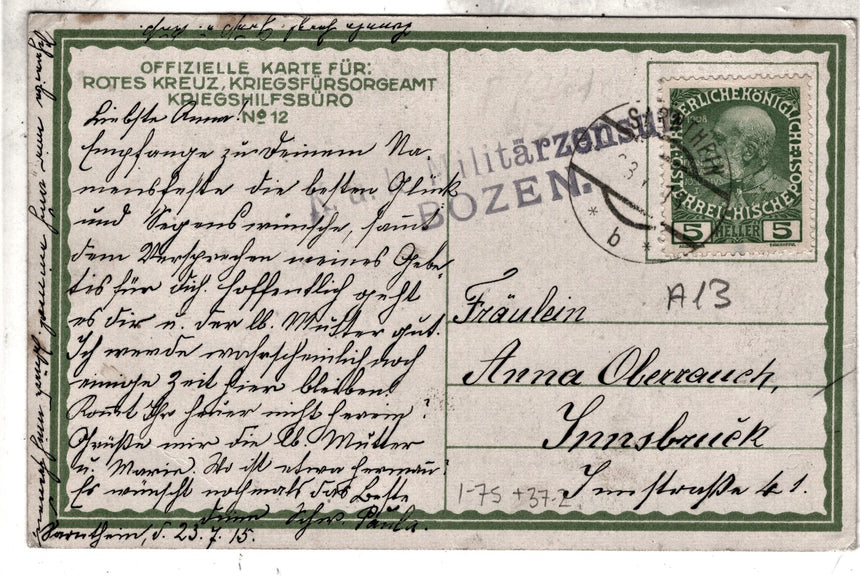 OFFIZIELLE KARTE FÜR:
ROTES KREUZ, KRIEGSFÜRSORGEAMT
KRIEGSHILFSBÜRO
No 12
Liebste Anna!
Empfange zu Deinem Na-
mensfeste die besten Glück
und Segenswünsche, samt
dem Versprechen meines Gebe-
tes für dich. Hoffentlich geht
es dir u. der lb. Mutter gut.
Ich werde wahrscheinlich noch
einige Zeit hier bleiben.
Kommt Ihr heuer nicht herein?
Grüße mir die lb. Mutter
u. Marie. Wo ist etwa Herman?
Es wünscht nochmals das Beste
deine Schw. Paula.
Sarnthein, d. 23.7.15.
K. u. k. Militärzensur
BOZEN.
SARNTHEIN
* b *
KAISERLICHE KÖNIGLICHE
ÖSTERREICHISCHE POST
1908
5 HELLER 5
A13
Fräulein
Anna Oberrauch,
Innsbruck
Innstraße 41.
1-75 +37-2